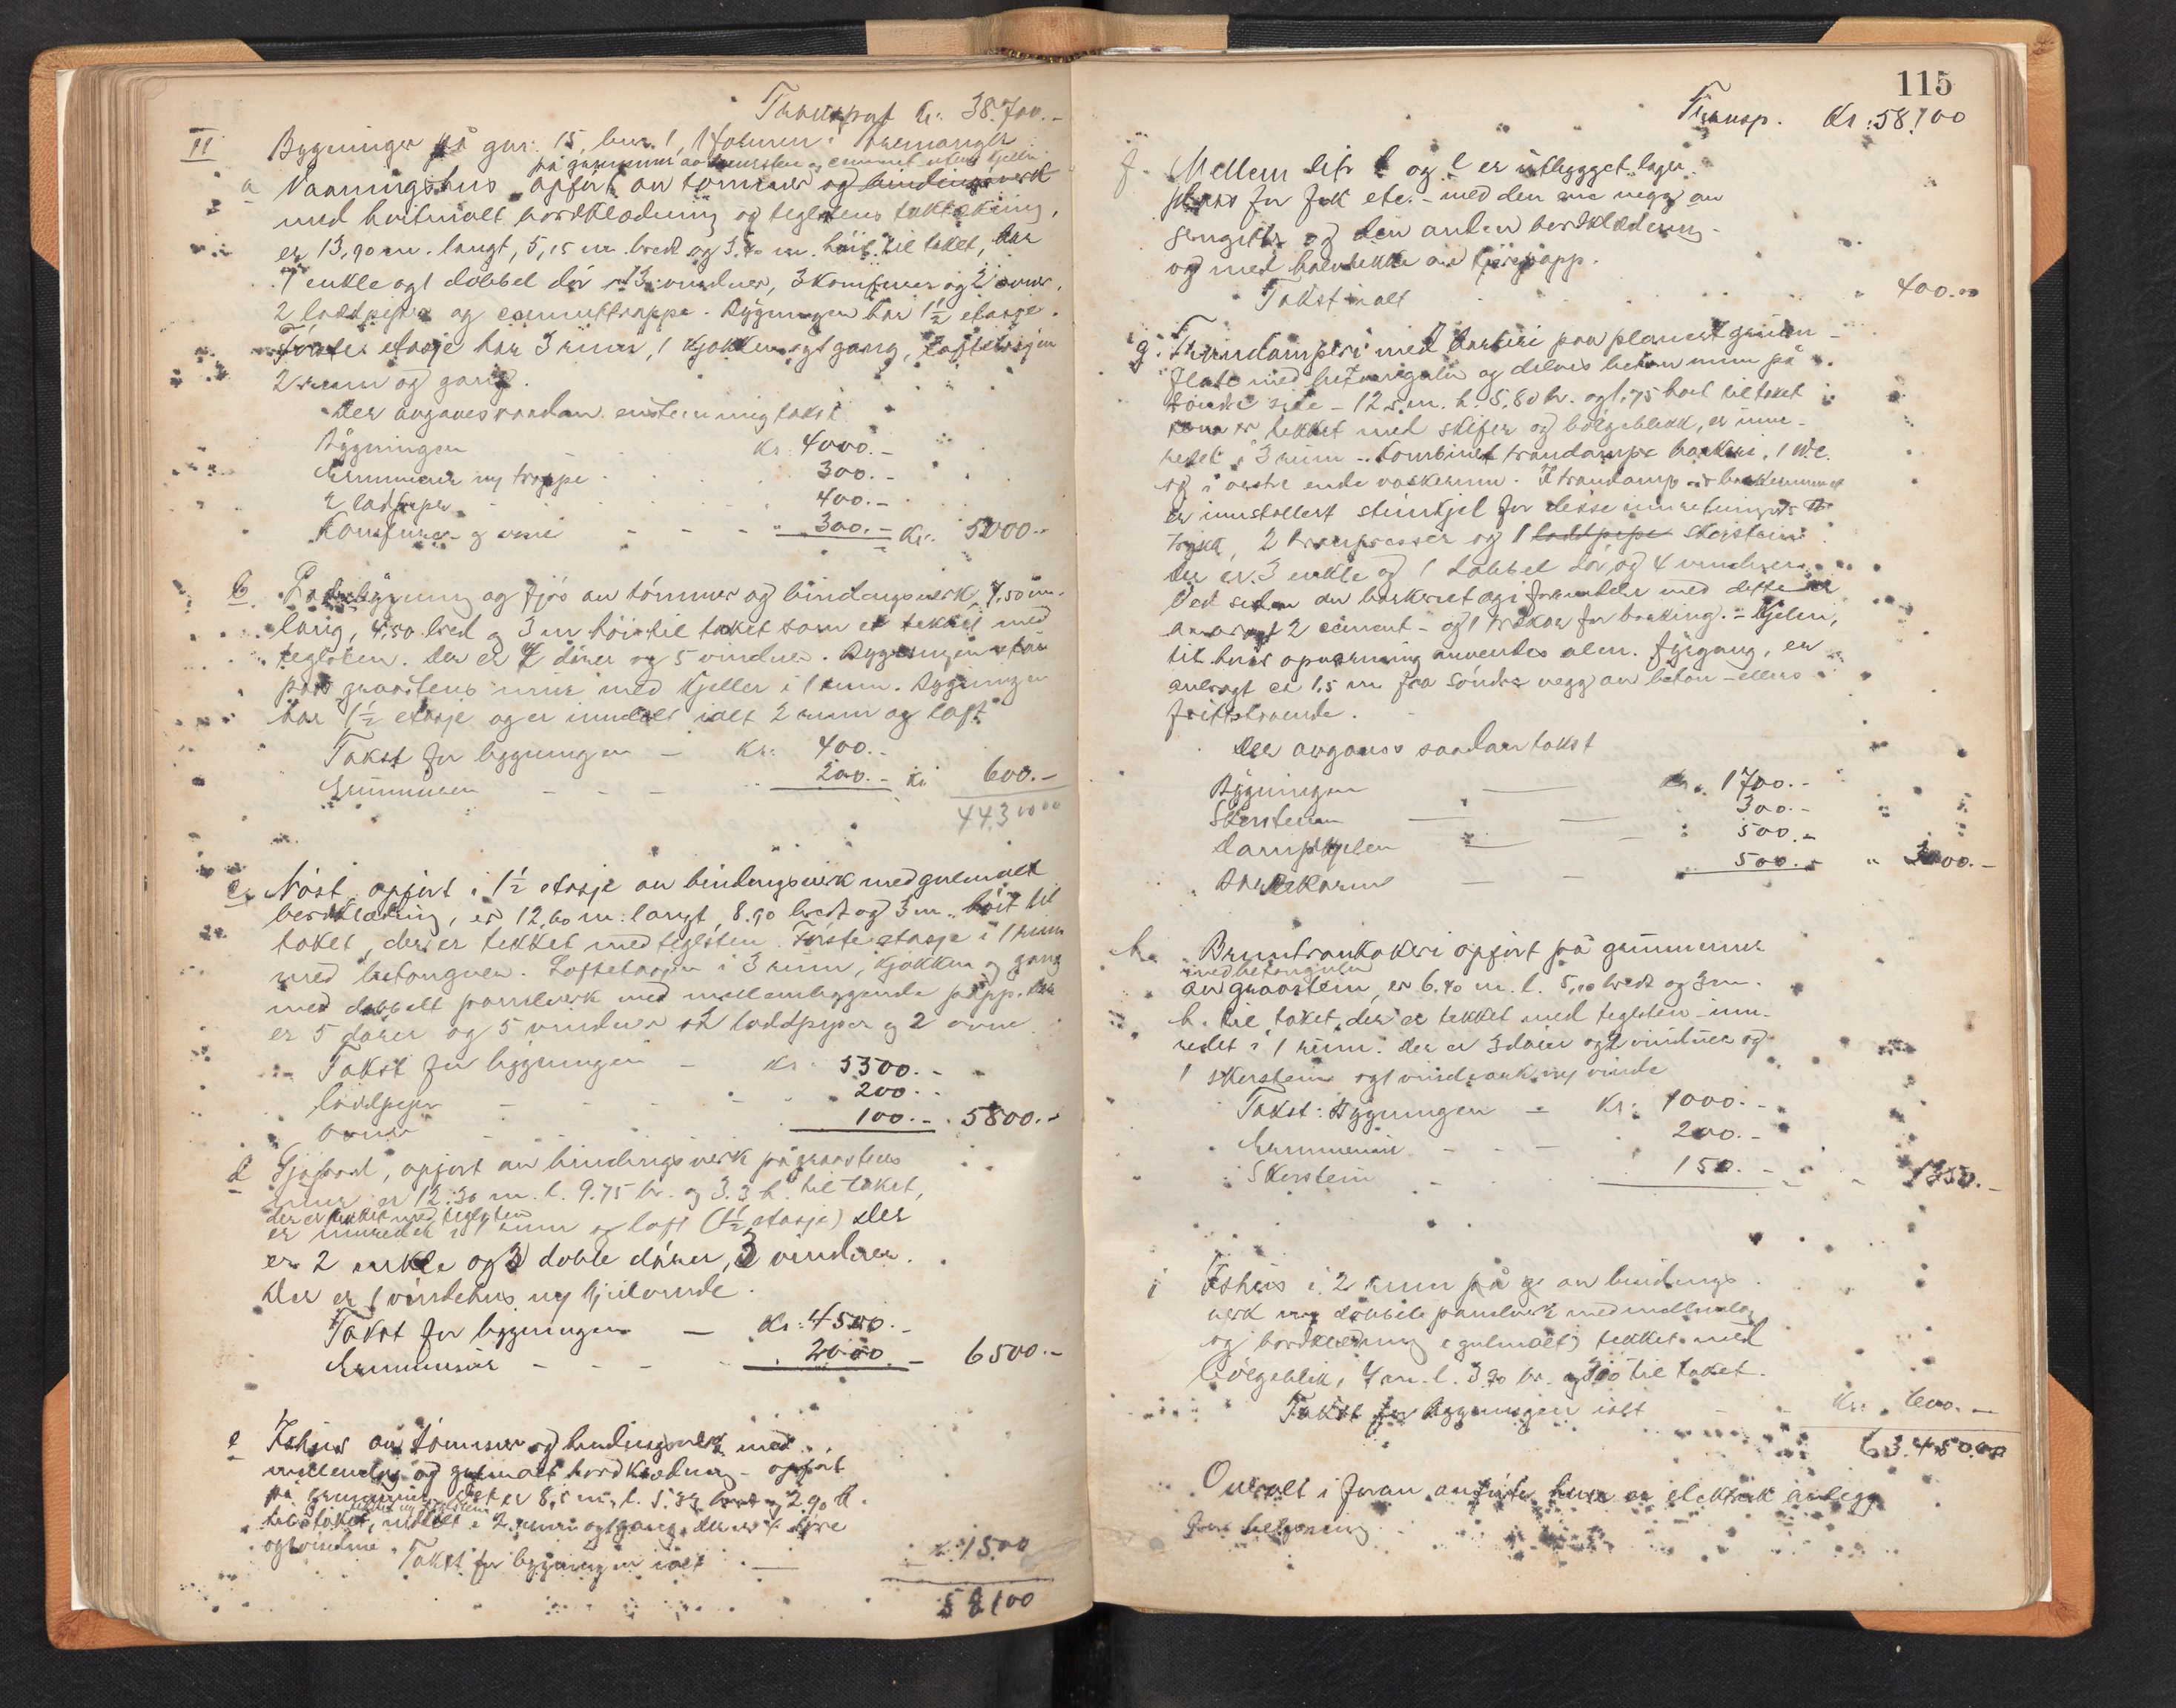 Transport kr. 38.700.-
II Bygninger på gnr. 15, bnr. 1, i Bremanger
på grunnmur av cement uten kjeller
a Vaaningshus opført av tømmer og bindingsverk
med hvitmalt bordklædning og teglstens taktækning,
er 13,90 m. langt, 5,15 m. bredt og 3.40 m. høit til taket, har
7 enkle og 1 dobbel dör, 13 vinduer, 3 komfurer og 2 ovner,
2 loddpiper og cementtrappe. Bygningen har 1½ etasje.
Förste etasje har 3 rum, 1 kjökken og 1 gang, loftetasjen
2 rum og gang.
Der avgaves saadan enstemmig takst
Bygningen Kr. 4000.-
Grunnmur m/ trappe 300.-
2 loddpiper 400.-
Komfurer og ovne 300.- Kr. 5000.-
b. bygning og fjös av tömmer og bindingsverk, 7,50 m.
lang, 4,50 bred og 3 m höi til taket som er tekket med
teglsten. Der er 4 dörer og 5 vinduer. Bygningen staar
paa graastens mur med kjeller i 1 rum. Bygningen
har 1½ etasje og er inndelt ialt 2 rum og loft
Takst for bygningen - Kr. 400.-
Grunnmuren 200.- Kr 600.-
44300 00
c. Nöst, opfört i 1½ etasje av bindingsverk med gulmalt
bordklædning, er 12,60 m. langt, 8.90 bredt og 3 m. höit til
taket, der er tekket med teglsten. Förste etasje i 1 rum
med betongulv. Loftetasjen i 3 rum, kjökken og gang
med dobbelt panelverk med mellemliggende papp. Der
er 5 dörer og 5 vinduer, 2 loddpiper og 2 ovne.
Takst for bygningen - Kr. 5500.-
loddpiper 200.-
ovner 100.- 5800.-
d Sjöbod, opfört av bindingsverk på graastens
mur er 12.30 m. l. 9.75 br. og 3.3 h. til taket,
der er tekket med teglsten
er innredet i 1 rum og loft (1½ etasje) Der
er 2 enkle og 3 doble dörer, 3 vinduer.
Der er 1 vindehus m/ hjulvinde.
Takst for bygningen - Kr: 4500.-
Grunnmur 2000.- 6500.-
e Ishus av tömmer og bindingsverk med
mellemlag og gulmalt bordklædning - opfört
på grunnmur. Det er 8,5 m. l. 5.33 bredt og 2.90 h.
tekket m/ teglsten
til taket, inndelt i 2 rum og 1 gang. Der er 4 döre
og 1 vindue. Takst for bygningen ialt - 1500
58100
115
Transp. Kr: 58.100
f. Mellem litr d og e er utbygget lager-
plass for fisk etc. - med den ene vegg av
og den anden bordklædning -
og med av tjærepapp.
Takst ialt 400.00
g. Trandamperi med barkeri paa planert grunn-
flate med betongulv og delvis beton mur på
söndre side - 12 m. l. 5,80 br. og 1.75 höit til taket
som er tekket med skifer og bölgeblekk, er inn-
redet i 3 rum - Kombinert trandamperi barkeri, 1 W.C.
og i östre ende vaskerum. I trandamp og barkerummet
er innstallert stimkjel for disse innretninger
2 tranpresser og 1 loddpipe skorstein
Der er 3 enkle og 1 dobbel dör, og 4 vinduer.
Ved siden av barkeriet og i forbindelse med dette er
anbragt 2 cement- og 1 trækar for barking. - Kjelen,
til hvis opvarming anvendes alm. fyrgang, er
anbragt ca 1,5 m fra söndre vegg av beton - ellers
frittstaaende.
Der avgaves saadan takst
Bygningen Kr. 1700.-
Skorstenen 300.-
Dampkjelen 500.-
Barkekarene 500.- " 3000.-
h. Bruntrankokeri opfört på grunnmur
med betongulv
av graastein, er 6.40 m. l. 5,10 bredt og 3 m.
h. til taket, der er tekket med teglsten - inn-
redet i 1 rum. Der er 3 dörer og 2 vinduer og
1 skorstein og 1 m/ vinde
Takst: Bygningen - Kr: 1000.-
Grunnmur 200.-
Skorstein 150.- 1350.-
i Ishus i 2 rum på av bindings
verk m/ dobbelt panelverk med mellemlag
og bordklædning (gulmalt) tekket med
bölgeblikk, 4 m. l. 3.90 br. og 3,00 til taket.
Takst for bygningen ialt Kr. 600.-
63.450.00
Overalt i foran anförte huse er elektrisk anlegg
for belysning.